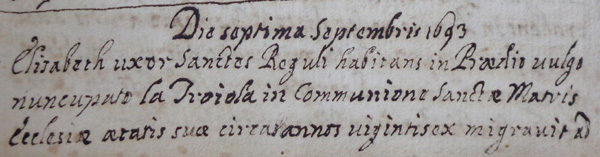 Die septima Septembris 1693
Elisabeth uxor Sanctes Reguli habitans in Prædio vulgo
nuncupato la Troiola in Communione Sanctæ Matris
Ecclesiæ ætatis suæ circa annos vigintisex migravit ad